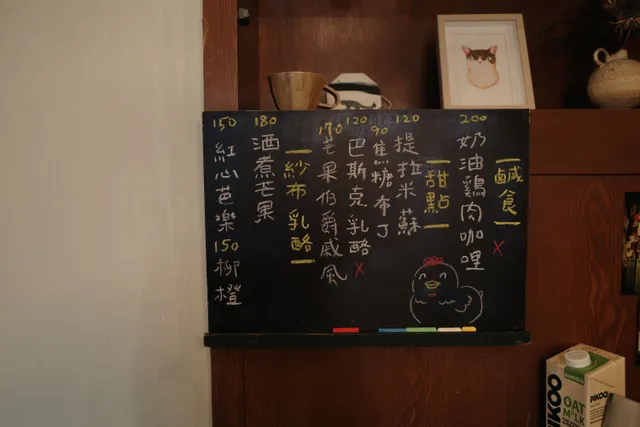 鹹食
200
奶油鷄肉咖哩 x
甜點
120
提拉米蘇
90
焦糖布丁
120
巴斯克乳酪 x
170
芒果伯爵戚風
紗布乳酪
180
酒煮芒果
150
紅心芭樂
150
柳橙
OAT
MILK